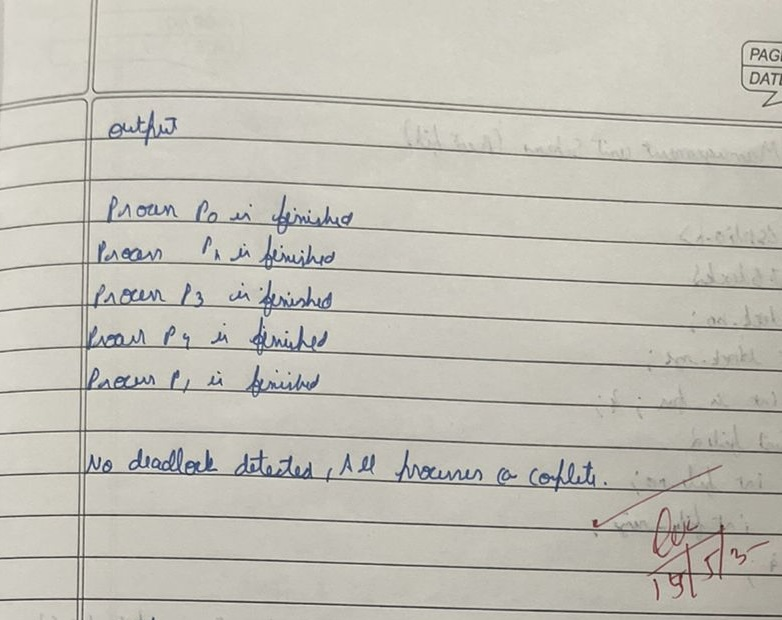 PAGE
DATE
output
Process P0 is finished
Process P2 is finished
Process P3 is finished
Process P4 is finished
Process P1 is finished
No deadlock detected, All processes are complete.